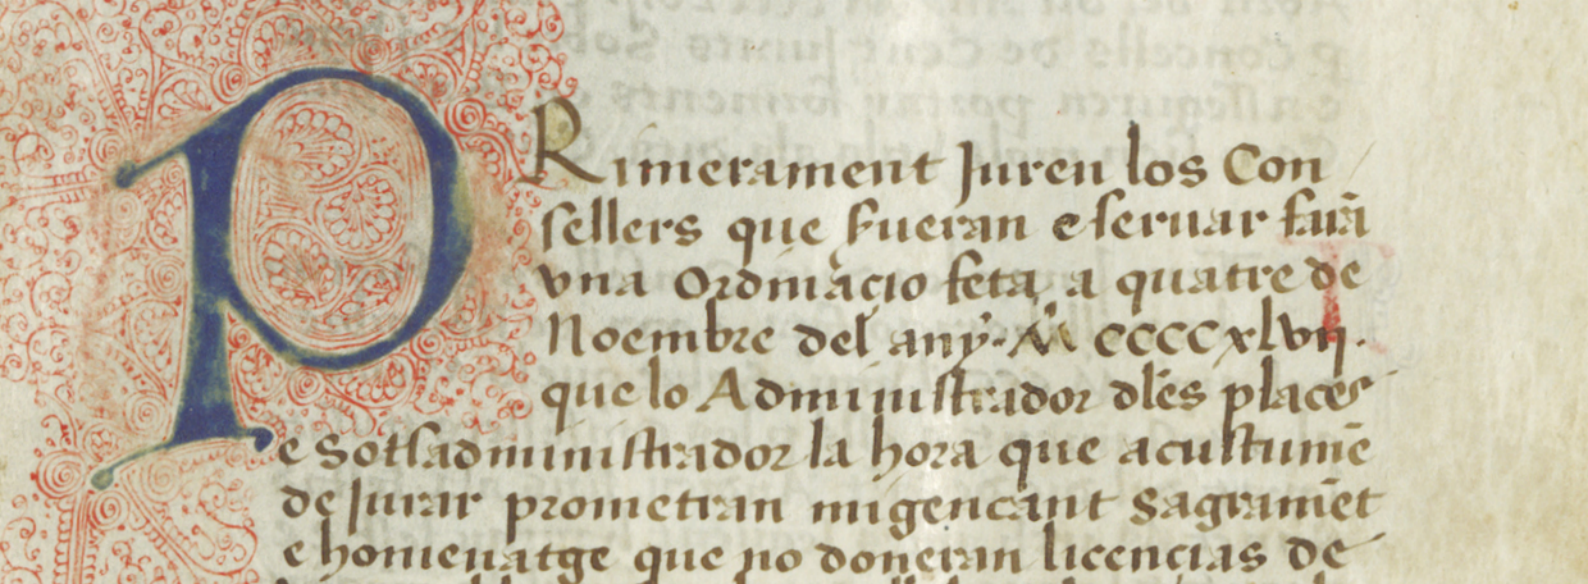 PRimerament Juren los Con
sellers que fueran e seruar farā
vna Ordinacio feta a quatre de
Noembre del any. M CCCCxlvij.
que lo Administrador dles places
e Sotsadministrador la hora que acustumē
de Jurar prometran migencant Sagramēt
e homenatge que no doneran licencias de